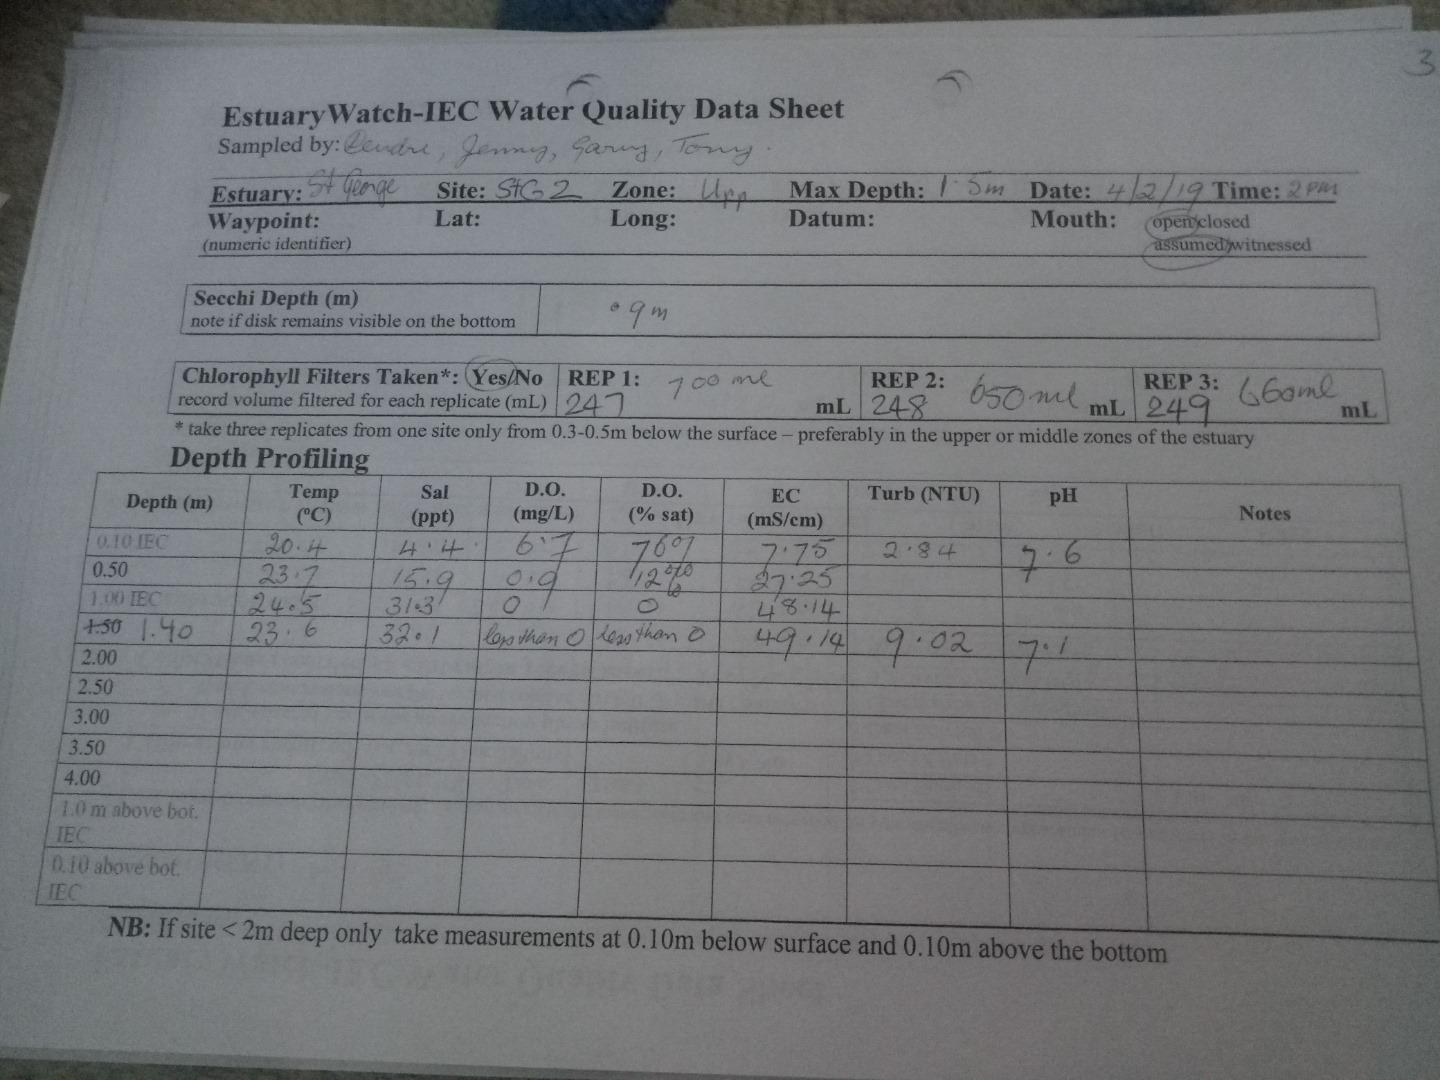 3
EstuaryWatch-IEC Water Quality Data Sheet
Sampled by: Jenny, Garry, Tony.
Estuary: St George Site: StG 2 Zone: Upp Max Depth: 1.5m Date: 4/2/19 Time: 2 PM
Waypoint: Lat: Long: Datum: Mouth: open/closed
(numeric identifier) assumed/witnessed
Secchi Depth (m) .9m
note if disk remains visible on the bottom
Chlorophyll Filters Taken*: Yes/No REP 1: 700 ml REP 2: 650 ml REP 3: 660ml
record volume filtered for each replicate (mL) 247 mL 248 mL 249 mL
* take three replicates from one site only from 0.3-0.5m below the surface – preferably in the upper or middle zones of the estuary
Depth Profiling
Depth (m) Temp (ºC) Sal (ppt) D.O. (mg/L) D.O. (% sat) EC (mS/cm) Turb (NTU) pH Notes
0.10 IEC 20.4 4.4 6.7 76% 7.75 2.84 7.6
0.50 23.7 15.9 0.9 12% 27.25
1.00 IEC 24.5 31.3 0 0 48.14
1.50 1.40 23.6 32.1 less than 0 less than 0 49.14 9.02 7.1
2.00
2.50
3.00
3.50
4.00
1.0 m above bot.
IEC
0.10 above bot.
IEC
NB: If site < 2m deep only take measurements at 0.10m below surface and 0.10m above the bottom